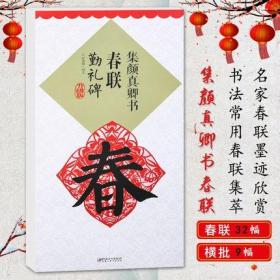 名家春联墨迹欣赏
书法常用春联集萃
集颜真卿书春联
春联 32幅
横批 9幅
集颜真卿书
春联
勤礼碑
春